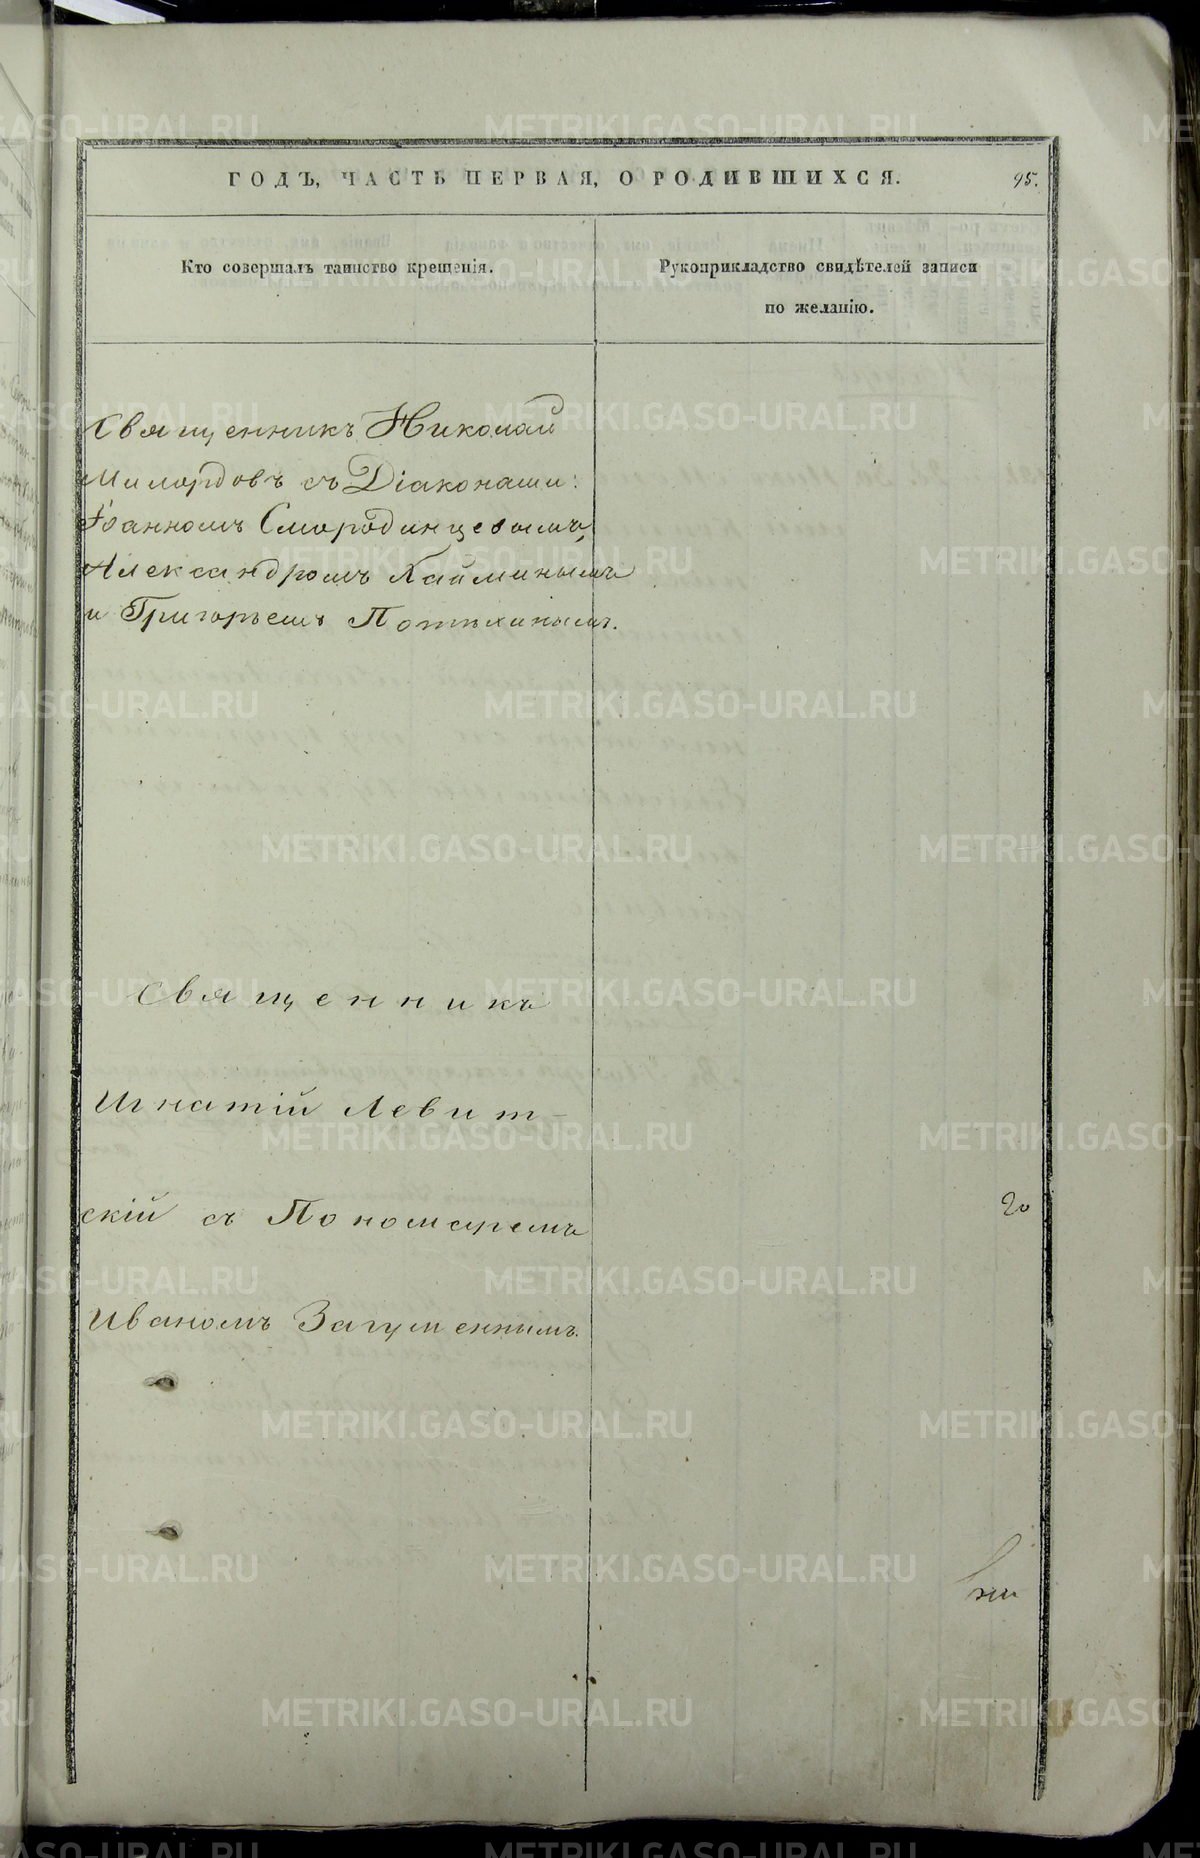 ГОДЪ, ЧАСТЬ ПЕРВАЯ, О РОДИВШИХСЯ. 95.
Кто совершалъ таинство крещенія.
Рукоприкладство свидѣтелей записи
по желанію.
Священникъ Николай
Милордовъ съ Діаконами:
Іоанномъ Смородинцевымъ,
Александромъ Кайминымъ
и Григорьемъ Потѣхинымъ.
Священникъ
Игнатій Левит-
скій съ Пономаремъ
20
Иваномъ Загуменнымъ.
METRIKI.GASO-URAL.RU